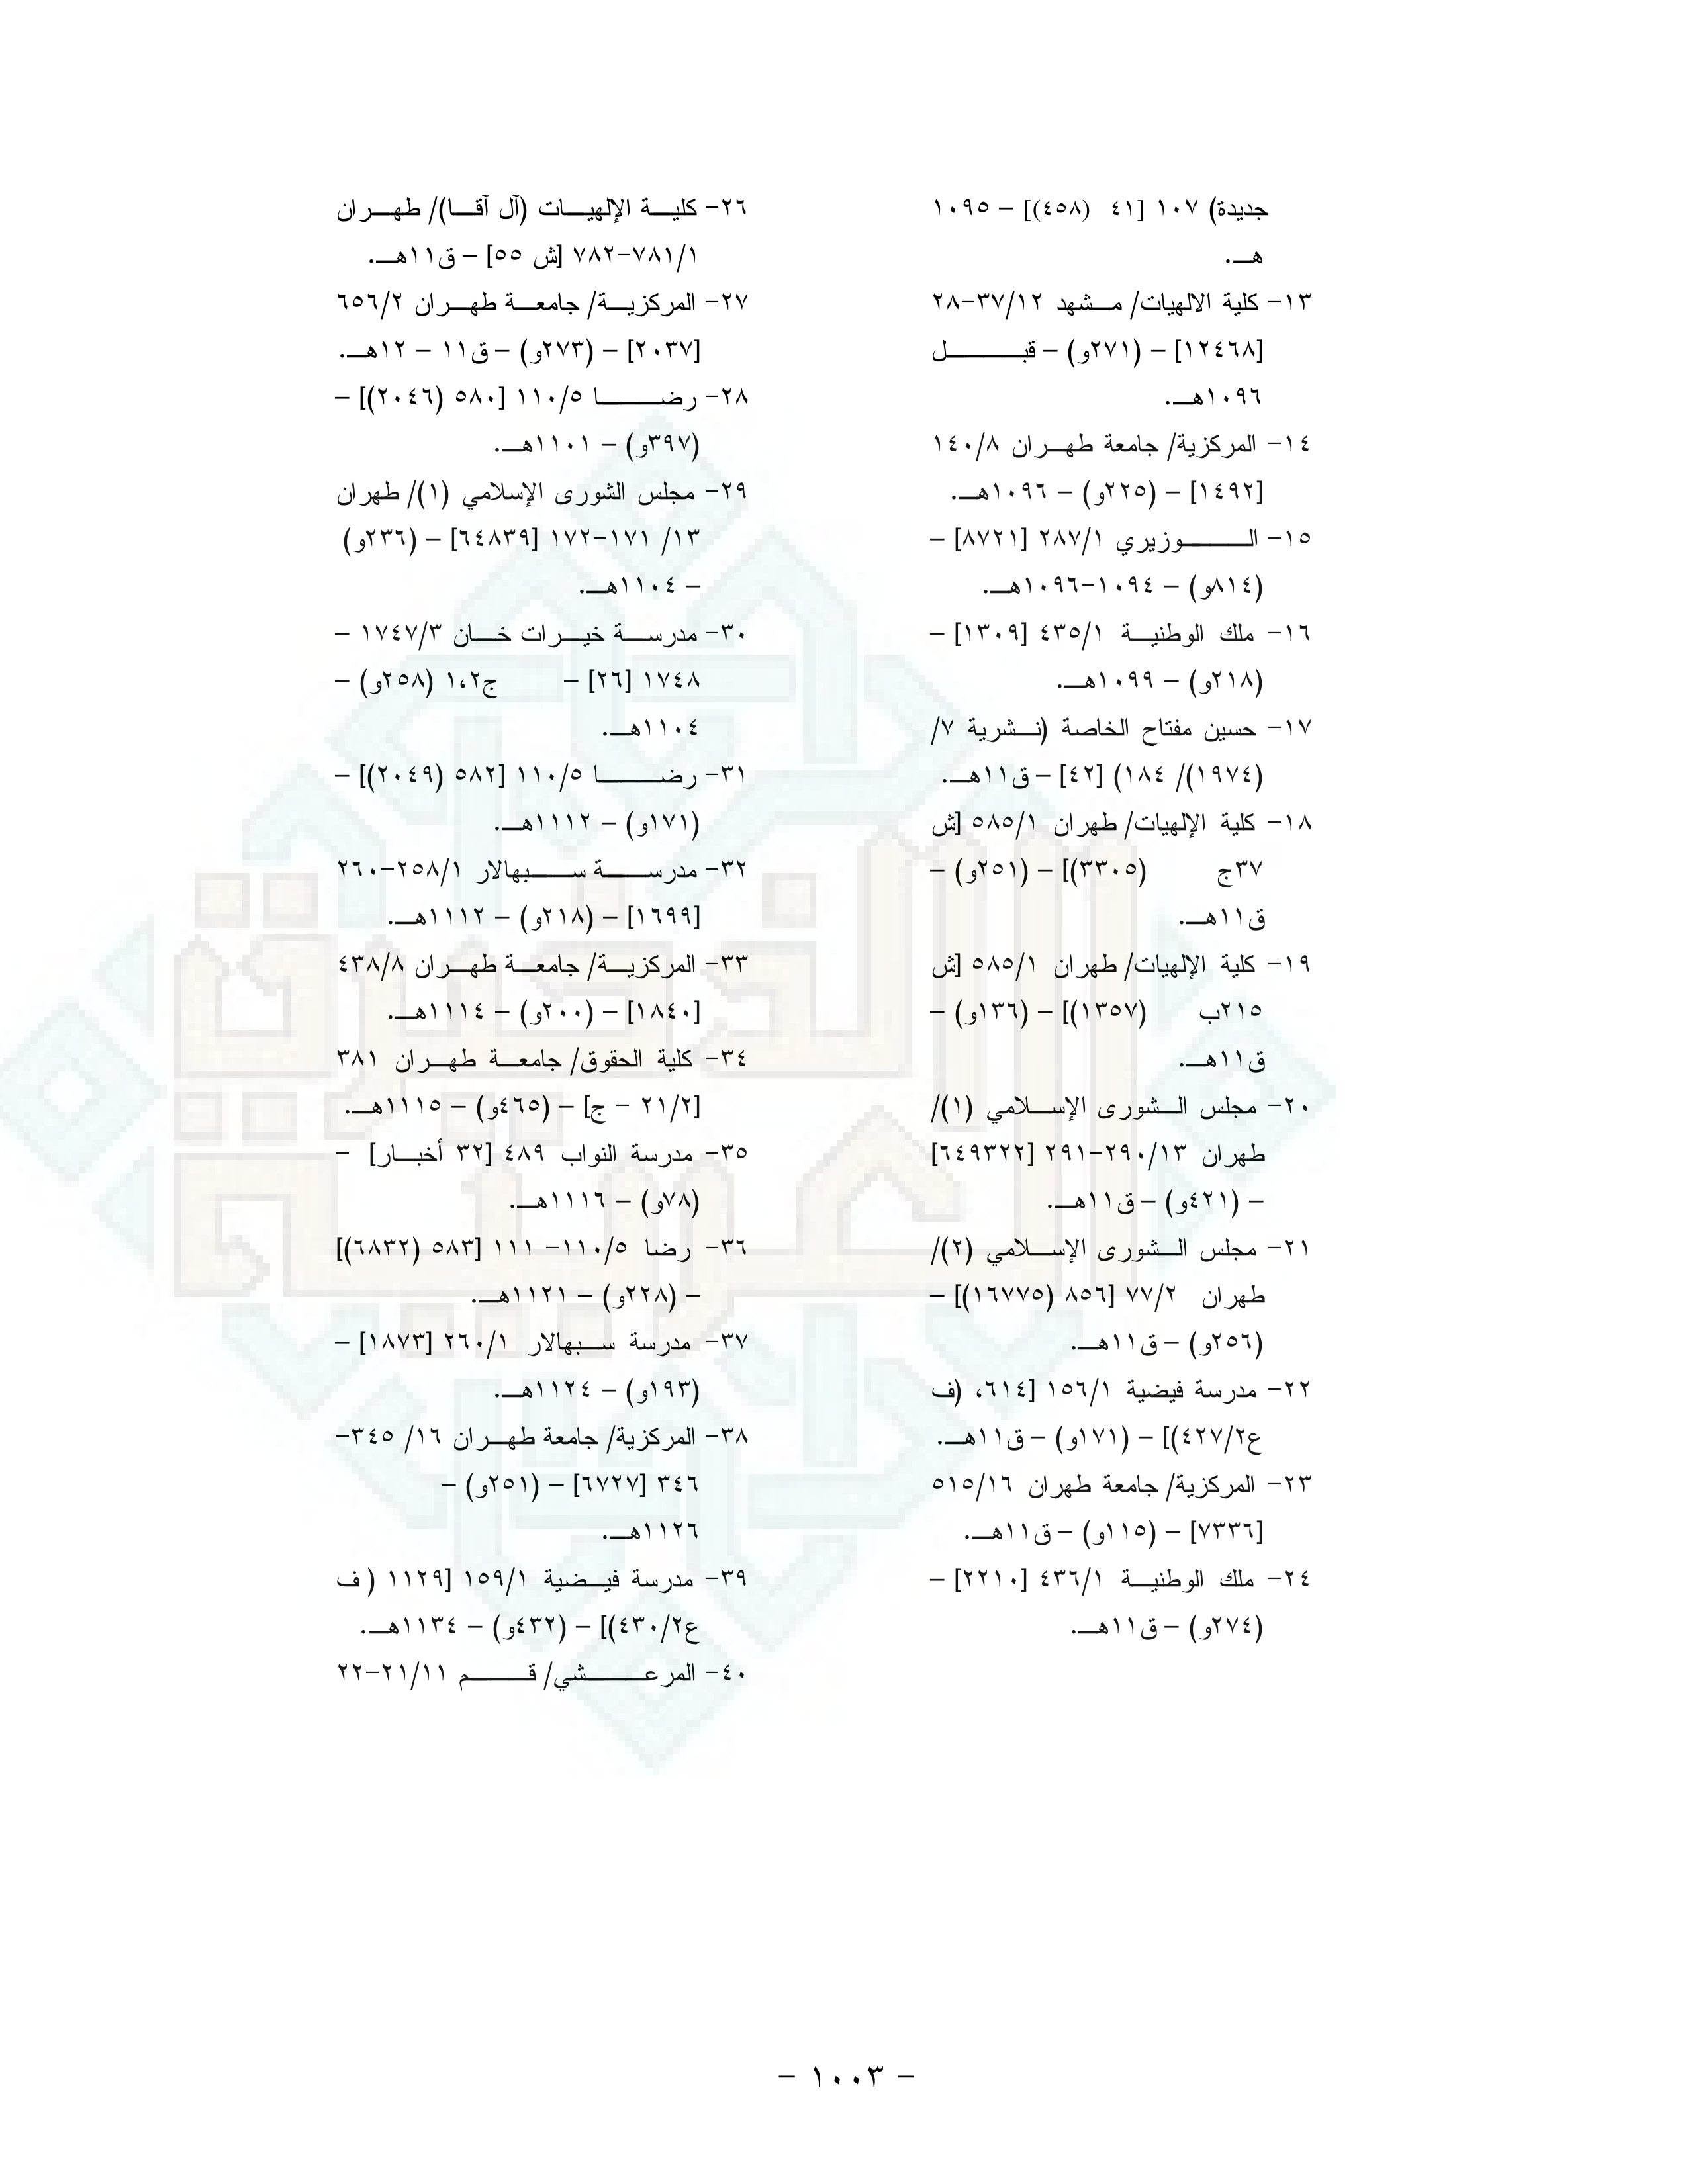 جديدة) ١٠٧ [٤١ (٤٥٨)] – ١٠٩٥
هـ.
١٣- كلية الالهيات/ مشهد ٣٧/١٢-٢٨
[١٢٤٦٨] – (٢٧١و) – قبل
١٠٩٦هـ.
١٤- المركزية/ جامعة طهران ١٤٠/٨
[١٤٩٢] – (٢٢٥و) – ١٠٩٦هـ.
١٥- الوزيري ٢٨٧/١ [٨٧٢١] –
(٨١٤و) – ١٠٩٤-١٠٩٦هـ.
١٦- ملك الوطنية ٤٣٥/١ [١٣٠٩] –
(٢١٨و) – ١٠٩٩هـ.
١٧- حسين مفتاح الخاصة (نشرية ٧/
(١٩٧٤)/ ١٨٤) [٤٢] – ق١١هـ.
١٨- كلية الإلهيات/ طهران ٥٨٥/١ [ش
٣٧ج (٣٣٠٥)] – (٢٥١و) –
ق١١هـ.
١٩- كلية الإلهيات/ طهران ٥٨٥/١ [ش
٢١٥ب (١٣٥٧)] – (١٣٦و) –
ق١١هـ.
٢٠- مجلس الشورى الإسلامي (١)/
طهران ٢٩٠/١٣-٢٩١ [٦٤٩٣٢٢]
– (٤٢١و) – ق١١هـ.
٢١- مجلس الشورى الإسلامي (٢)/
طهران ٧٧/٢ [٨٥٦ (١٦٧٧٥)] –
(٢٥٦و) – ق١١هـ.
٢٢- مدرسة فيضية ١٥٦/١ [٦١٤، (ف
ع٤٢٧/٢)] – (١٧١و) – ق١١هـ.
٢٣- المركزية/ جامعة طهران ٥١٥/١٦
[٧٣٣٦] – (١١٥و) – ق١١هـ.
٢٤- ملك الوطنية ٤٣٦/١ [٢٢١٠] –
(٢٧٤و) – ق١١هـ.
٢٦- كلية الإلهيات (آل آقا)/ طهران
٧٨١/١-٧٨٢ [ش ٥٥] – ق١١هـ.
٢٧- المركزية/ جامعة طهران ٦٥٦/٢
[٢٠٣٧] – (٢٧٣و) – ق١١ – ١٢هـ.
٢٨- رضا ١١٠/٥ [٥٨٠ (٢٠٤٦)] –
(٣٩٧و) – ١١٠١هـ.
٢٩- مجلس الشورى الإسلامي (١)/ طهران
١٣/ ١٧١-١٧٢ [٦٤٨٣٩] – (٢٣٦و)
– ١١٠٤هـ.
٣٠- مدرسة خيرات خان ١٧٤٧/٣ –
١٧٤٨ [٢٦] – ج١،٢ (٢٥٨و) –
١١٠٤هـ.
٣١- رضا ١١٠/٥ [٥٨٢ (٢٠٤٩)] –
(١٧١و) – ١١١٢هـ.
٣٢- مدرسة سبهالار ٢٥٨/١-٢٦٠
[١٦٩٩] – (٢١٨و) – ١١١٢هـ.
٣٣- المركزية/ جامعة طهران ٤٣٨/٨
[١٨٤٠] – (٢٠٠و) – ١١١٤هـ.
٣٤- كلية الحقوق/ جامعة طهران ٣٨١
[٢١/٢ – ج] – (٤٦٥و) – ١١١٥هـ.
٣٥- مدرسة النواب ٤٨٩ [٣٢ أخبار] –
(٧٨و) – ١١١٦هـ.
٣٦- رضا ١١٠/٥- ١١١ [٥٨٣ (٦٨٣٢)]
– (٢٢٨و) – ١١٢١هـ.
٣٧- مدرسة سبهالار ٢٦٠/١ [١٨٧٣] –
(١٩٣و) – ١١٢٤هـ.
٣٨- المركزية/ جامعة طهران ١٦/ ٣٤٥-
٣٤٦ [٦٧٢٧] – (٢٥١و) –
١١٢٦هـ.
٣٩- مدرسة فيضية ١٥٩/١ [١١٢٩ ( ف
ع٤٣٠/٢)] – (٤٣٢و) – ١١٣٤هـ.
٤٠- المرعشي/ قم ٢١/١١-٢٢
– ١٠٠٣ –